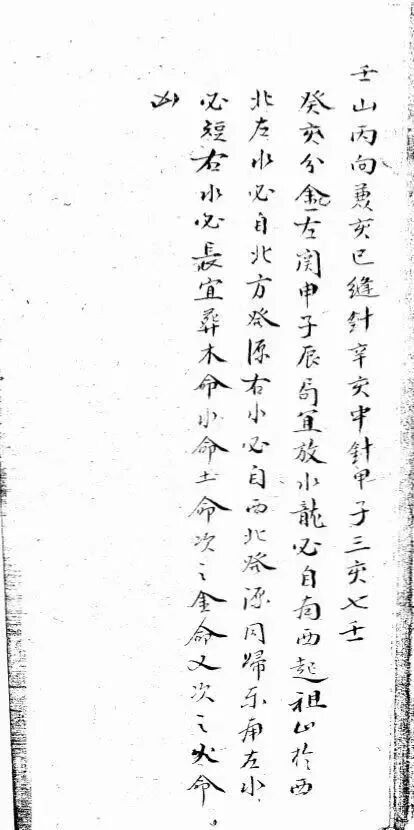 壬山丙向兼亥巳縫針辛亥中針甲子三亥七壬
癸亥分金左関申子辰局宜放水龍必自南西起祖山於西
北左水必自北方發源右小必自西北發源同歸东南左水
必短右水必長宜葬木命水命土命次之金命又次之火命
凶